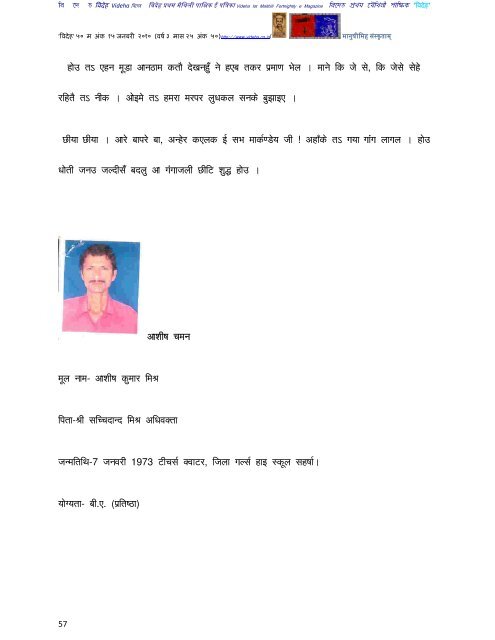 वि दे ह विदेह Videha বিদেহ विदेह प्रथम मैथिली पाक्षिक ई पत्रिका Videha Ist Maithili Fortnightly e Magazine 'विदेह'
'विदेह' ५० म अंक १५ जनवरी २०१० (वर्ष ३ मास २५ अंक ५०) http://www.videha.co.in मानुषीमिह संस्कृताम्
होउ तऽ एहन मूडा आनठाम कतौ देखनहुँ ने हएब तकर प्रमाण भेल । माने कि जे से, कि जेसे सेहे
रहितै तऽ नीक । ओइमे तऽ हमरा मरपर लुधकल सनके बुझाइए ।
छीया छीया । आरे बापरे बा, अन्हेर कएलक ई सभ मार्कण्डेय जी ! अहाँके तऽ गया गांग लागल । होउ
धोती जनउ जल्दीसँ बदलु आ गंगाजली छीटि शुद्ध होउ ।
आशीष चमन
मूल नाम- आशीष कुमार मिश्र
पिता-श्री सच्चिदान्द मिश्र अधिवक्ता
जन्मतिथि-7 जनवरी 1973 टीचर्स क्वाटर, जिला गर्ल्स हाइ स्कूल सहर्षा।
योग्यता- बी.ए. (प्रतिष्ठा)
57